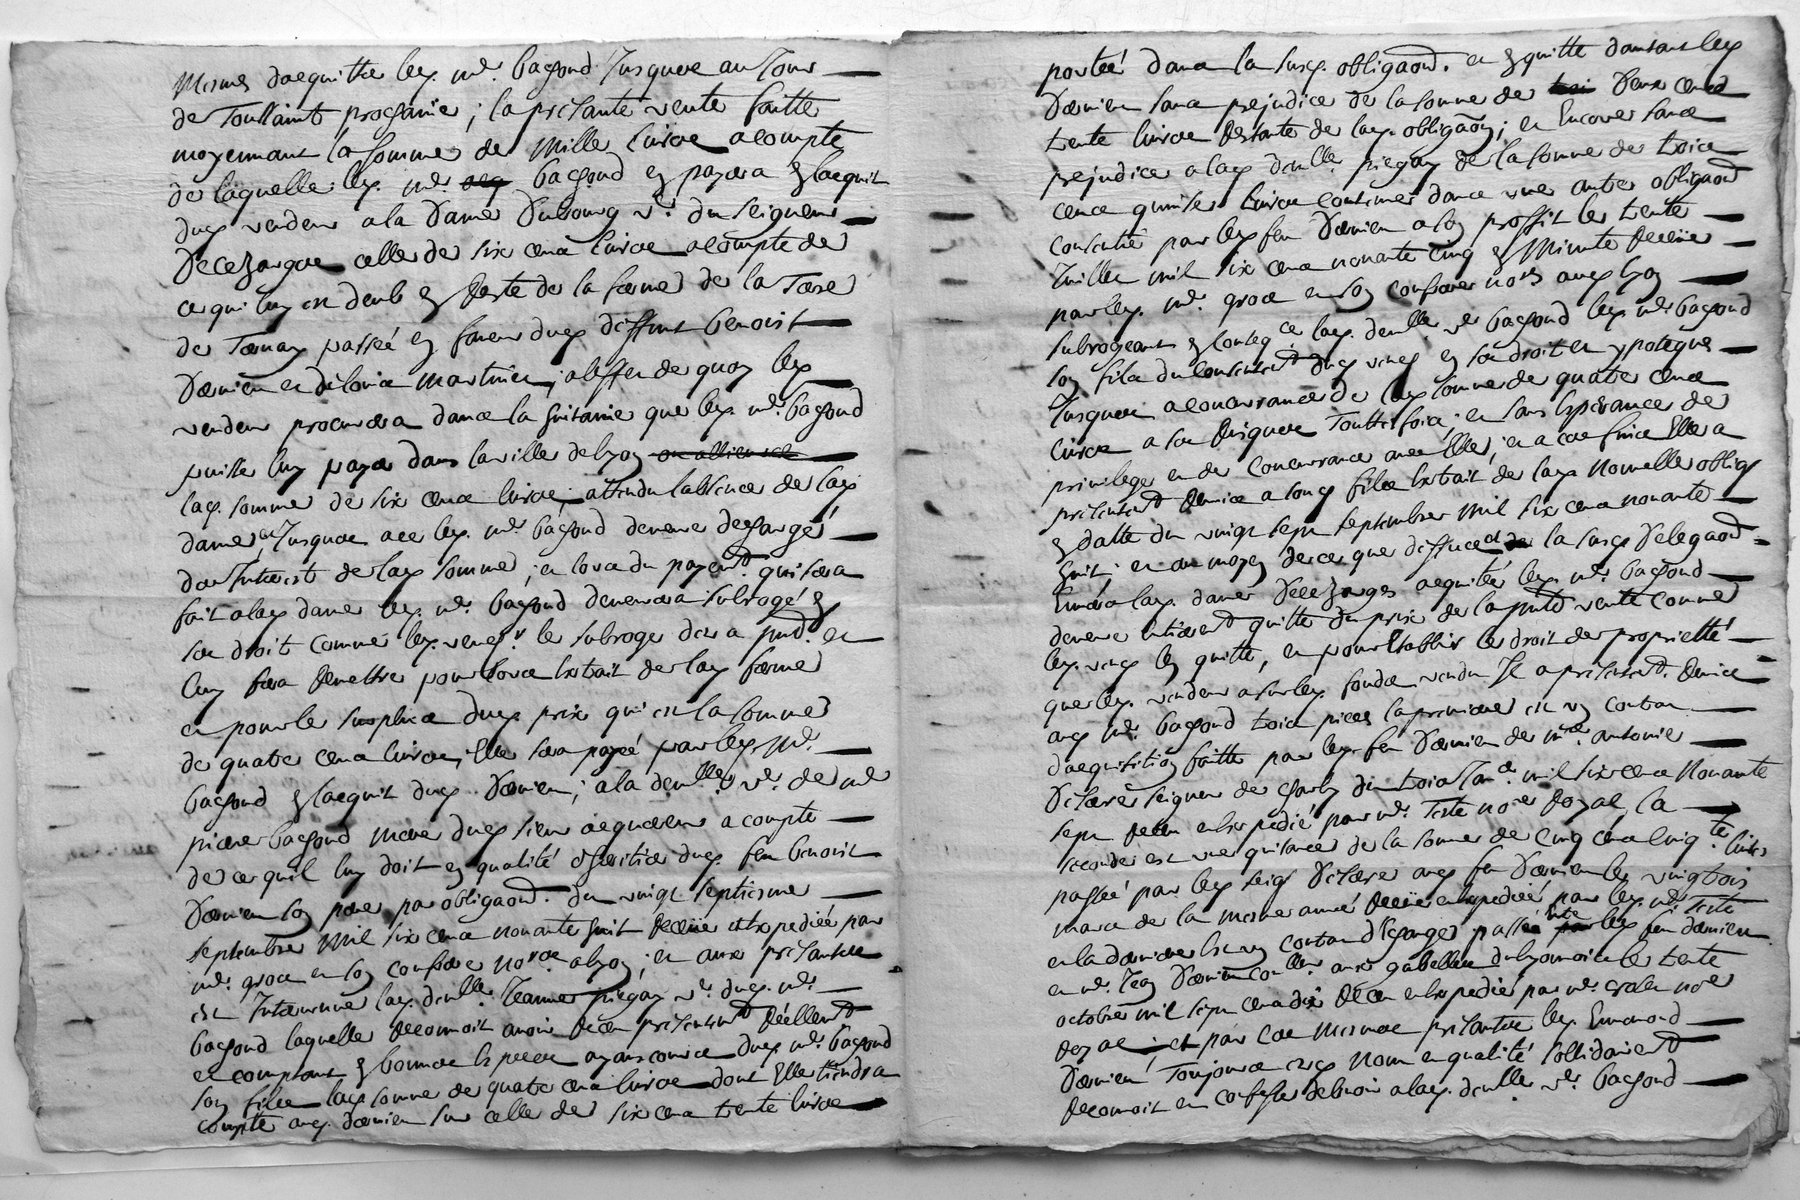 mesmes dacquitter led. mr. bachod jusques au jour
de Toussaints prochaine ; la presante vente faitte
moyennant la somme de mille livres acompte
de laquelle led. mr. bachod en payera en lacquit
dud. vendeur a la dame Dubourg ve. du seigneur
celle de six cens livres acompte de
ce qui luy est deub en reste de la ferme de la
de passée en faveur dud. deffunt benoist
Damien et de martinier, a leffet de quoy led.
vendeur procurera dans la huitaine que led. mr. bachod
puisse luy payer dans la ville de lyon
lad. somme de six cens livres, attendu labsence de lad.
dame, et jusques a ce led. mr. bachod demeure dechargé
des interests de lad. somme ; et lors du payemt. qui sera
fait a lad. dame led. mr. bachod demeurera subrogé en
ses droits comme led. vendr. le subroge des a pnt. et
luy fera remettre pour lors extrait de lad. ferme
et pour le surplus dud. prix qui est la somme
de quatre cens livres, elle sera payée par led. mr.
bachod en lacquit dud. Damien, a la demlle. ve. de mr.
pierre bachod mere dud. sieur acquereur acompte
de ce quil luy doit en qualité dheritier dud. feu benoist
Damien son pere par obligaon. du vingt septiesme
septembre mil six cens nonante huit receüe et expediée par
mr. gros et son confrere nores. a lyon, et aux presantes
est intervenue lad. demlle. Jeanne ve. dud. mr.
bachod laquelle reconnoit avoir receu presentemt. reellemt.
et comptant en bonnes especes ayans cours dud. mr. bachod
son fils lad. somme de quatre cens livres dont elle tiendra
compte aud. damien sur celle de six cens trente livres
portée dans la susd. obligaon. et en quitte dautant led.
Damien sans prejudice de la somme de deux cens
trente livres restante de lad. obligaon ; et encores sans
prejudice a lad. demlle. de la somme de trois
cens quinse livres contenue dans une autre obligaon
consentie par led. feu Damien a son proffit le trente
juillet mil six cens nonante cinq en minute receüe
par led. mr. gros et son confrere nores aud. lyon
subrogeant en conseqce. lad. demlle. ve. bachod led. mr. bachod
son fils du consentemt. dud. vendr. en ses droits et ypoteques
jusques a concurrance de lad. somme de quatre cens
livres a ses risques touttesfois, et sans esperance de
privilege et de concurrance avec elle, et a ces fins elle a
presentemt. remis a sond. fils extrait de lad. nouvelle oblign
en datte du vingt sept septembre mil six cens nonante
huit, et au moyen de ce que dessus et de la susd. delegaon
envers lad. dame acquitée led. mr. bachod
demeure entieremt. quitte du prix de la pnte. vente comme
led. vendr. len quitte, et pour establir le droit de proprietté
que led. vendeur a sur led. fonds vendu il a presentemt. remis
aud. mr. bachod trois pieces la premiere est un contrat
dacquisition faitte par led. feu Damien de mre. antoine
seigneur de du trois janr. mil six cens nonante
sept receu et expedié par mr. Teste nore royal, la
seconde est une quitance de la somme de cinq cens cinqte. livres
passée par led. seigr aud. feu Damien le vingt trois
mars de la mesme année receüe et expediée par led. mr. Teste
et la derniere est un contrat dechange passé entre led. feu damien
et mr. Jean Damien coner. aux gabelles du lyonnois le trente
octobre mil sept cens dix receu et expedié par mr. nore
royal ; et par ces mesmes presantes led. Ennemond
Damien toujours esd. nom et qualité sollidairemt.
reconnoit et confesse debvoir a lad. demlle. ve. bachod